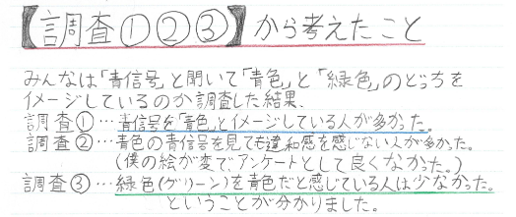 【調査①②③】から考えたこと
みんなは「青信号」と聞いて「青色」と「緑色」のどっちを
イメージしているのか調査した結果、
調査①…青信号を「青色」とイメージしている人が多かった。
調査②…青色の青信号を見ても違和感を感じない人が多かった。
(僕の絵が変でアンケートとして良くなかった。)
調査③…緑色(グリーン)を青色だと感じている人は少なかった。
ということが分かりました。